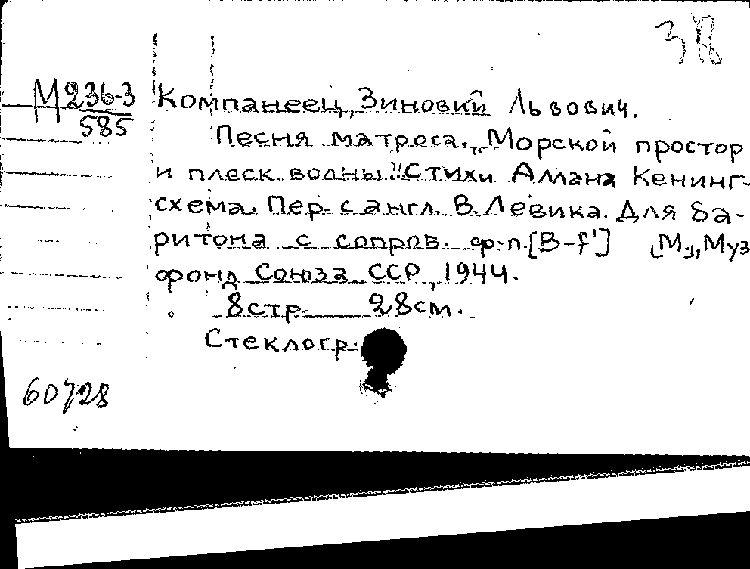 38
М 236-3
585
Компанеец, Зиновий Львович.
Песня матроса. „Морской простор
и плеск волны." Стихи Алана Кенинг-
схема. Пер. с англ. В. Левика. Для ба-
ритона с сопров. ф-п. [B-f'] М., Муз
фонд Союза ССР, 1944.
8 стр 28 см.
Стеклогр.
60728